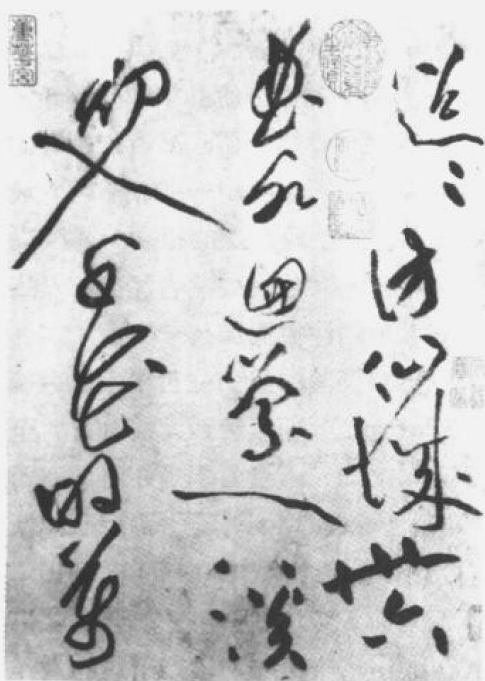 迢〻訪仙城卅六
曲水迴縈一溪
初入千花明萬